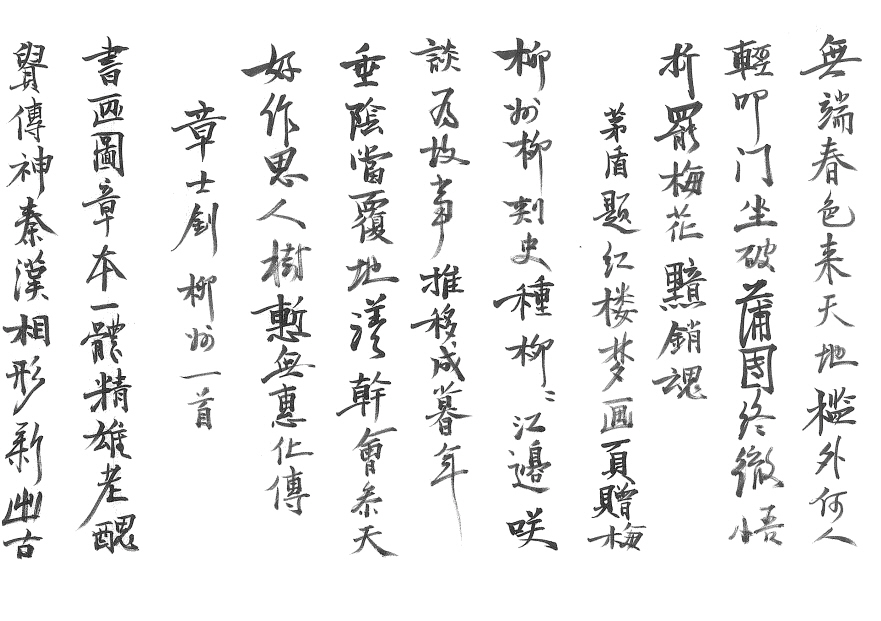 無端春色来天地檻外何人
輕叩门坐破蒲團终徹悟
折罷梅花黯銷魂
茅盾题红楼梦画頁贈梅
柳州柳刺史種柳〻江邊咲
談为故事推移成暮年
垂陰當覆地漾幹會参天
好作思人樹慙無惠化傳
章士釗柳州一首
書画圖章本一體精雄老醜
貴傳神秦漢相形新出古